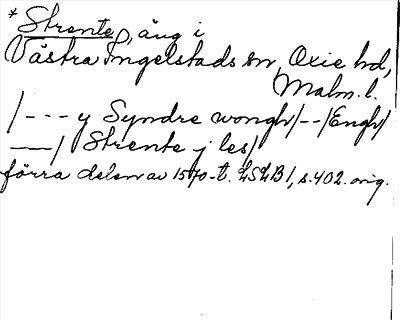 * Strente, äng i
Västra Ingelstads sn, Oxie hd,
Malm. l.
/--- y Syndre wongh/--/Engh/
—/ Strente j les/
förra delen av 1570-t. LSLB 1, s. 402. orig.